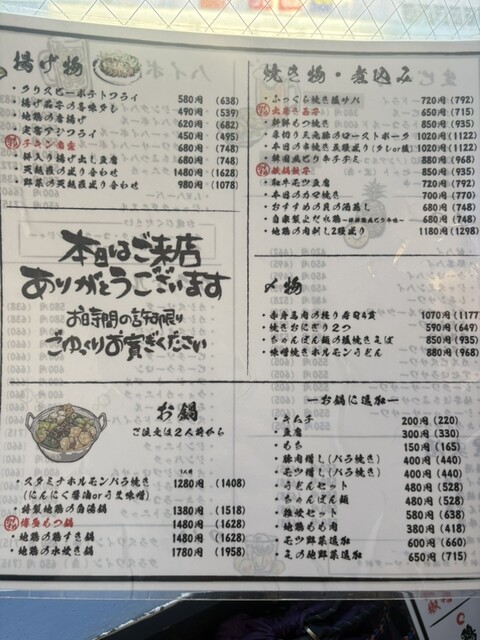 揚げ物
・クリスピーポテトフライ 580円 (638)
・揚げ茄子の香味タレ 490円 (539)
・地鶏の唐揚げ 620円 (682)
・定番アジフライ 450円 (495)
チキン南蛮 680円 (748)
・餅入り揚げ出し豆腐 680円 (748)
・天麩羅の盛り合わせ 1480円 (1628)
・野菜の天麩羅盛り合わせ 980円 (1078)
本日はご来店
ありがとうございます
お時間の許す限り
ごゆっくりお寛ぎください
焼き物・煮込み
・ふっくら焼き塩サバ 720円 (792)
650円 (715)
850円 (935)
・厚切り三元豚のローストポーク 1020円 (1122)
・本日の串焼き五種盛り(タレor塩) 1020円 (1122)
・韓国風ピリ辛チヂミ 880円 (968)
鉄鍋餃子 850円 (935)
・和牛モツ豆腐 720円 (792)
・本日のカマ焼き 700円 (770)
・おすすめの貝の酒蒸し 680円 (748)
・自家製よだれ鶏 680円 (748)
・地鶏の肉刺し2種盛り 1180円 (1298)
〆物
・赤身馬肉の握り寿司4貫 1070円 (1177
・焼きおにぎり2つ 590円 (649)
・ちゃんぽん麺の塩焼きそば 850円 (935)
・味噌焼きホルモンうどん 880円 (968)
お鍋
ご注文は2人前から
1人前
・スタミナホルモンバラ焼き 1280円 (1408)
(にんにく醤油or うま味噌)
・特製地鶏の白湯鍋 1380円 (1518)
博多もつ鍋 1480円 (1628)
・地鶏の鶏すき鍋 1480円 (1628)
・地鶏の水炊き鍋 1780円 (1958)
ーお鍋に追加ー
・キムチ 200円 (220)
・豆腐 300円 (330)
・もち 150円 (165)
・豚肉増し(バラ焼き) 400円 (440)
・モツ増し(バラ焼き) 400円 (440)
・うどんセット 480円 (528)
・ちゃんぽん麺 480円 (528)
・雑炊セット 580円 (638)
・地鶏もも肉 380円 (418)
・モツ野菜追加 600円 (660)
・その他野菜追加 650円 (715)